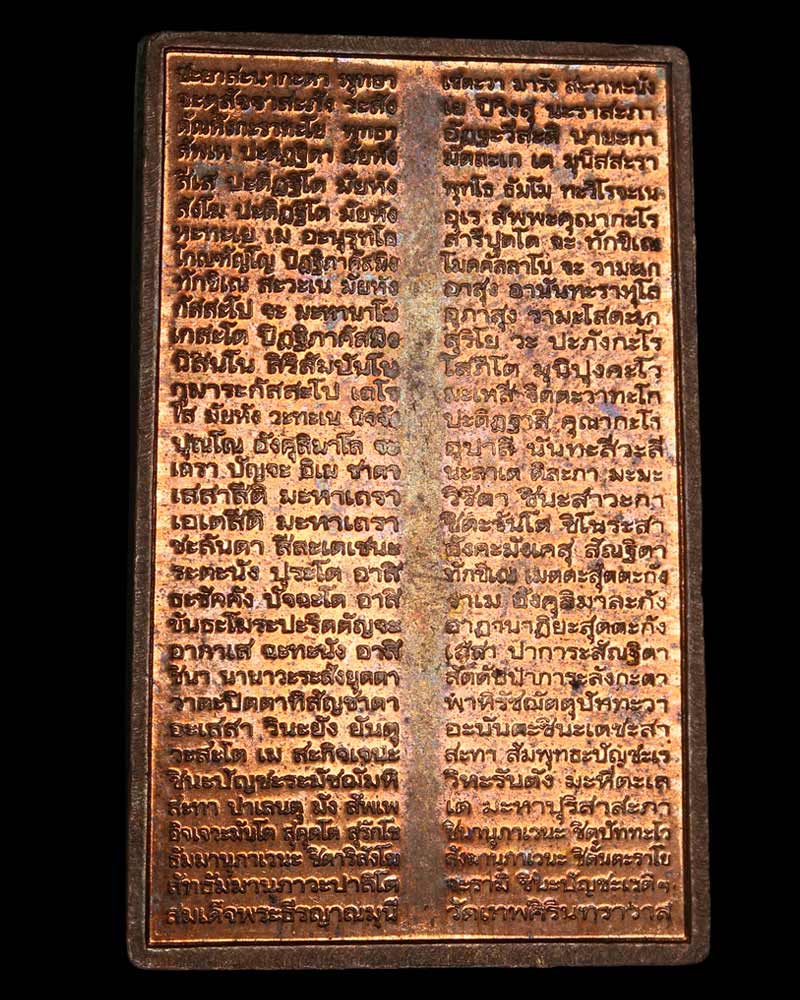 ชะยาสะนากะตา พุทธา เชตะวา มารัง สะวาหะนัง
จะตุสัจจาสะภัง ระสัง เย ปิวิงสุ นะราสะภา
ตัณหังกะราทะโย พุทธา อัฏฐะวีสะติ นายะกา
สัพเพ ปะติฏฐิตา มัยหัง มัตถะเก เต มุนิสสะรา
สีเส ปะติฏฐิโต มัยหัง พุทโธ ธัมโม ทะวิโรจะเน
สังโฆ ปะติฏฐิโต มัยหัง อุเร สัพพะคุณากะโร
หะทะเย เม อะนุรุทโธ สารีปุตโต จะ ทักขิเณ
โกณฑัญโญ ปิฏฐิภาคัสมิง โมคคัลลาโน จะ วามะเก
ทักขิเณ สะวะเน มัยหัง อาสุง อานันทะราหุโล
กัสสะโป จะ มะหานาโม อุภาสุง วามะโสตะเก
เกสะโต ปิฏฐิภาคัสมิง สุริโย วะ ปะภังกะโร
นิสินโน สิริสัมปันโน โสภิโต มุนิปุงคะโว
กุมาระกัสสะโป เถโร มะเหสี จิตตะวาทะโก
โส มัยหัง วะทะเน นิจจัง ปะติฏฐาสิ คุณากะโร
ปุณโณ อังคุลิมาโล จะ อุบาลี นันทะสีวะลี
เถรา ปัญจะ อิเม ชาตา นะลาเต ติละภา มะมะ
เสสาสีติ มะหาเถรา วิชิตา ชินะสาวะกา
เอเตสีติ มะหาเถรา ชิตะวันโต ชิโนระสา
ชะลันตา สีละเตเชนะ อังคะมังเคสุ สัณฐิตา
ระตะนัง ปุระโต อาสิ ทักขิเณ เมตตะสุตตะกัง
ธะชัคคัง ปัจฉะโต อาสิ วาเม อังคุลิมาละกัง
ขันธะโมระปะริตตัญจะ อาฏานาฏิยะสุตตะกัง
อากาเส ฉะทะนัง อาสิ เสสา ปาการะสัณฐิตา
ชินา นานาวะระสังยุตตา สัตตัปปาการะลังกะตา
วาตะปิตตาทิสัญชาตา พาหิรัชฌัตตุปัททะวา
อะเสสา วินะยัง ยันตุ อะนันตะชินะเตชะสา
วะสะโต เม สะกิจเจนะ สะทา สัมพุทธะปัญชะเร
ชินะปัญชะระมัชฌัมหิ วิหะรันตัง มะหีตะเล
สะทา ปาเลนตุ มัง สัพเพ เต มะหาปุริสาสะภา
อิจเจวะมันโต สุคุตโต สุรักโข ชินานุภาเวนะ ชิตุปัททะโว
ธัมมานุภาเวนะ ชิตาริสังโฆ สังฆานุภาเวนะ ชิตันตะราโย
สัทธัมมานุภาวะปาลิโต จะรามิ ชินะปัญชะเรติฯ
สมเด็จพระธีรญาณมุนี วัดเทพศิรินทราวาส